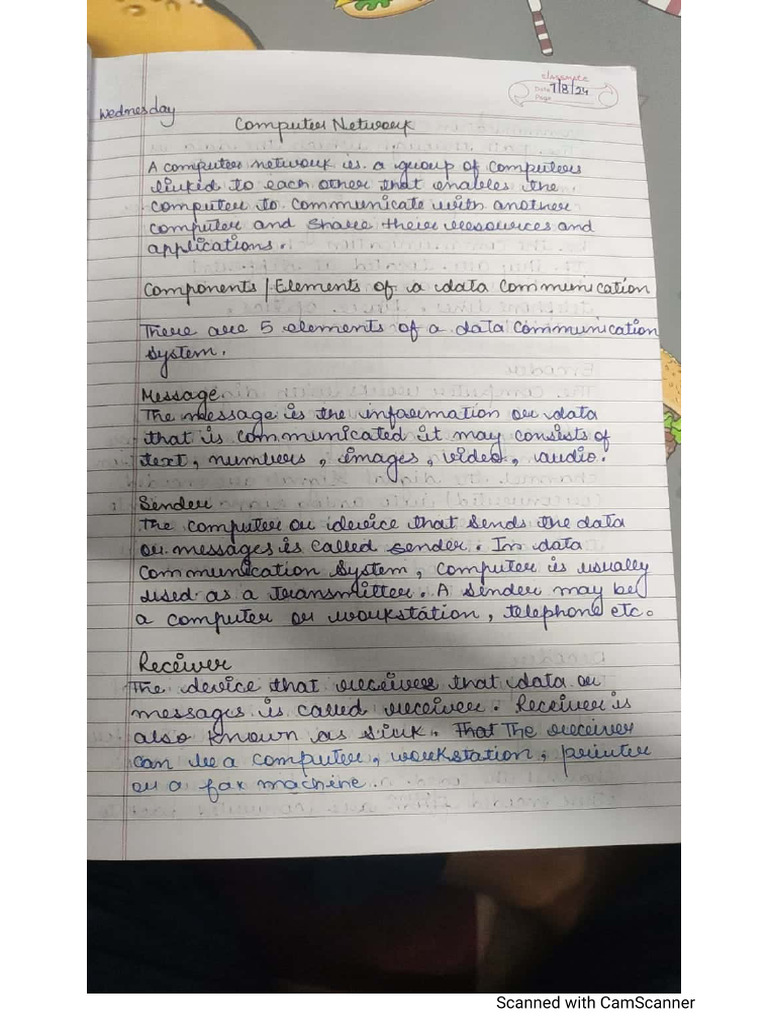 classmate
Date 7/8/24
Page
Wednesday
Computer Network
A computer network is a group of computers
linked to each other that enables the
computer to communicate with another
computer and share their resources and
applications.
Components / Elements of a data communication
There are 5 elements of a data communication
system.
Message
The message is the information or data
that is communicated it may consists of
text, numbers, images, video, audio.
Sender
The computer or device that sends the data
or messages is called sender. In data
communication system, computer is usually
used as a transmitter. A sender may be
a computer or workstation, telephone etc.
Receiver
The device that receives that data or
messages is called receiver. Receiver is
also known as sink. That The receiver
can be a computer, workstation, printer
or a fax machine.
Scanned with CamScanner